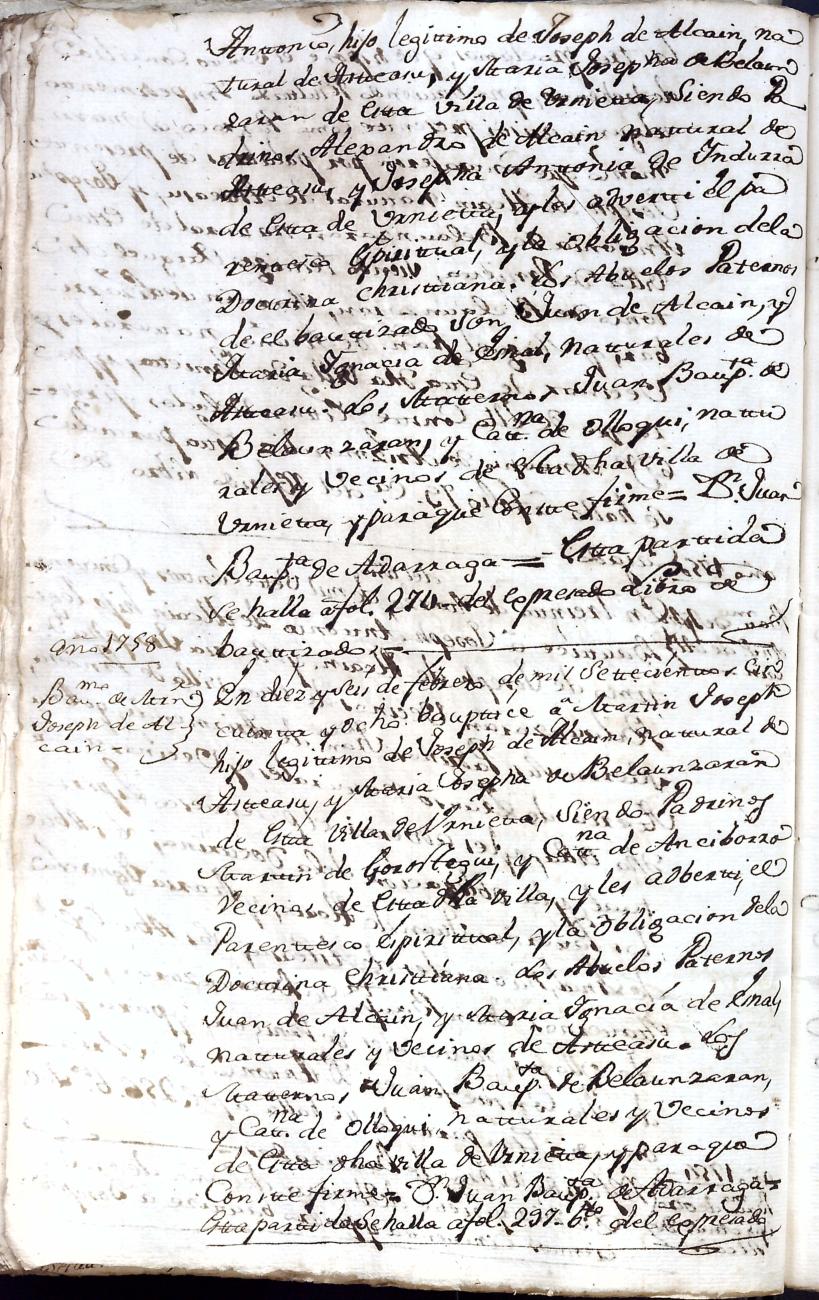 Antonio, hijo legitimo de Joseph de Alcain, na
tural de Asteasu, y Maria Josepha de Belaun
zaran de Esta Villa de Urnieta, Siendo Pa
drinos Alexandro de Alcain natural de
Asteasu, y Josepha Antonia de Indurra
de Esta de Urnieta, y les adverti el pa
rentesco Espiritual, y la obligacion dela
Doctrina Christiana. Los Abuelos Paternos
de el bautizado son, Juan de Alcain, y
Maria Ignacia de Esnal, naturales de
Asteasu. Los Maternos Juan Baup.ta de
Belaunzaran, y Cat.na de Olloqui, natu
rales y Vecinos de Esta dha Villa de
Urnieta, y para que Conste firme = D.n Juan
Baup.ta de Adarraga = Esta partida
se halla a fol. 274. del Espresado Libro de
bautizados.
año 1758
Bau.mo de Mar.n
Joseph de Al-
cain =
En diez y seis de febrero de mil Setecientos Cin
cuenta y ocho bauptice â Martin Joseph
hijo legitimo de Joseph de Alcain, natural de
Asteasu, y Maria Josepha de Belaunzaran
de Esta Villa de Urnieta, Siendo Padrinos
Martin de Gorostegui, y Cat.na de Anciborro
Vecinos de Esta dha Villa, y les adberti, el
Parentesco Espiritual, y la obligacion dela
Doctrina Christiana. Los Abuelos Paternos
Juan de Alcain, y Maria Ignacia de Esnal,
naturales y Vecinos de Asteasu. Los
Maternos Juan Baup.ta de Belaunzaran,
y Cat.na de Olloqui, naturales y Vecinos
de Esta dha Villa de Urnieta, y para que
Conste firme = D. Juan Baup.ta de Adarraga =
Esta partida Se halla a fol. 297. b.to del Espresado